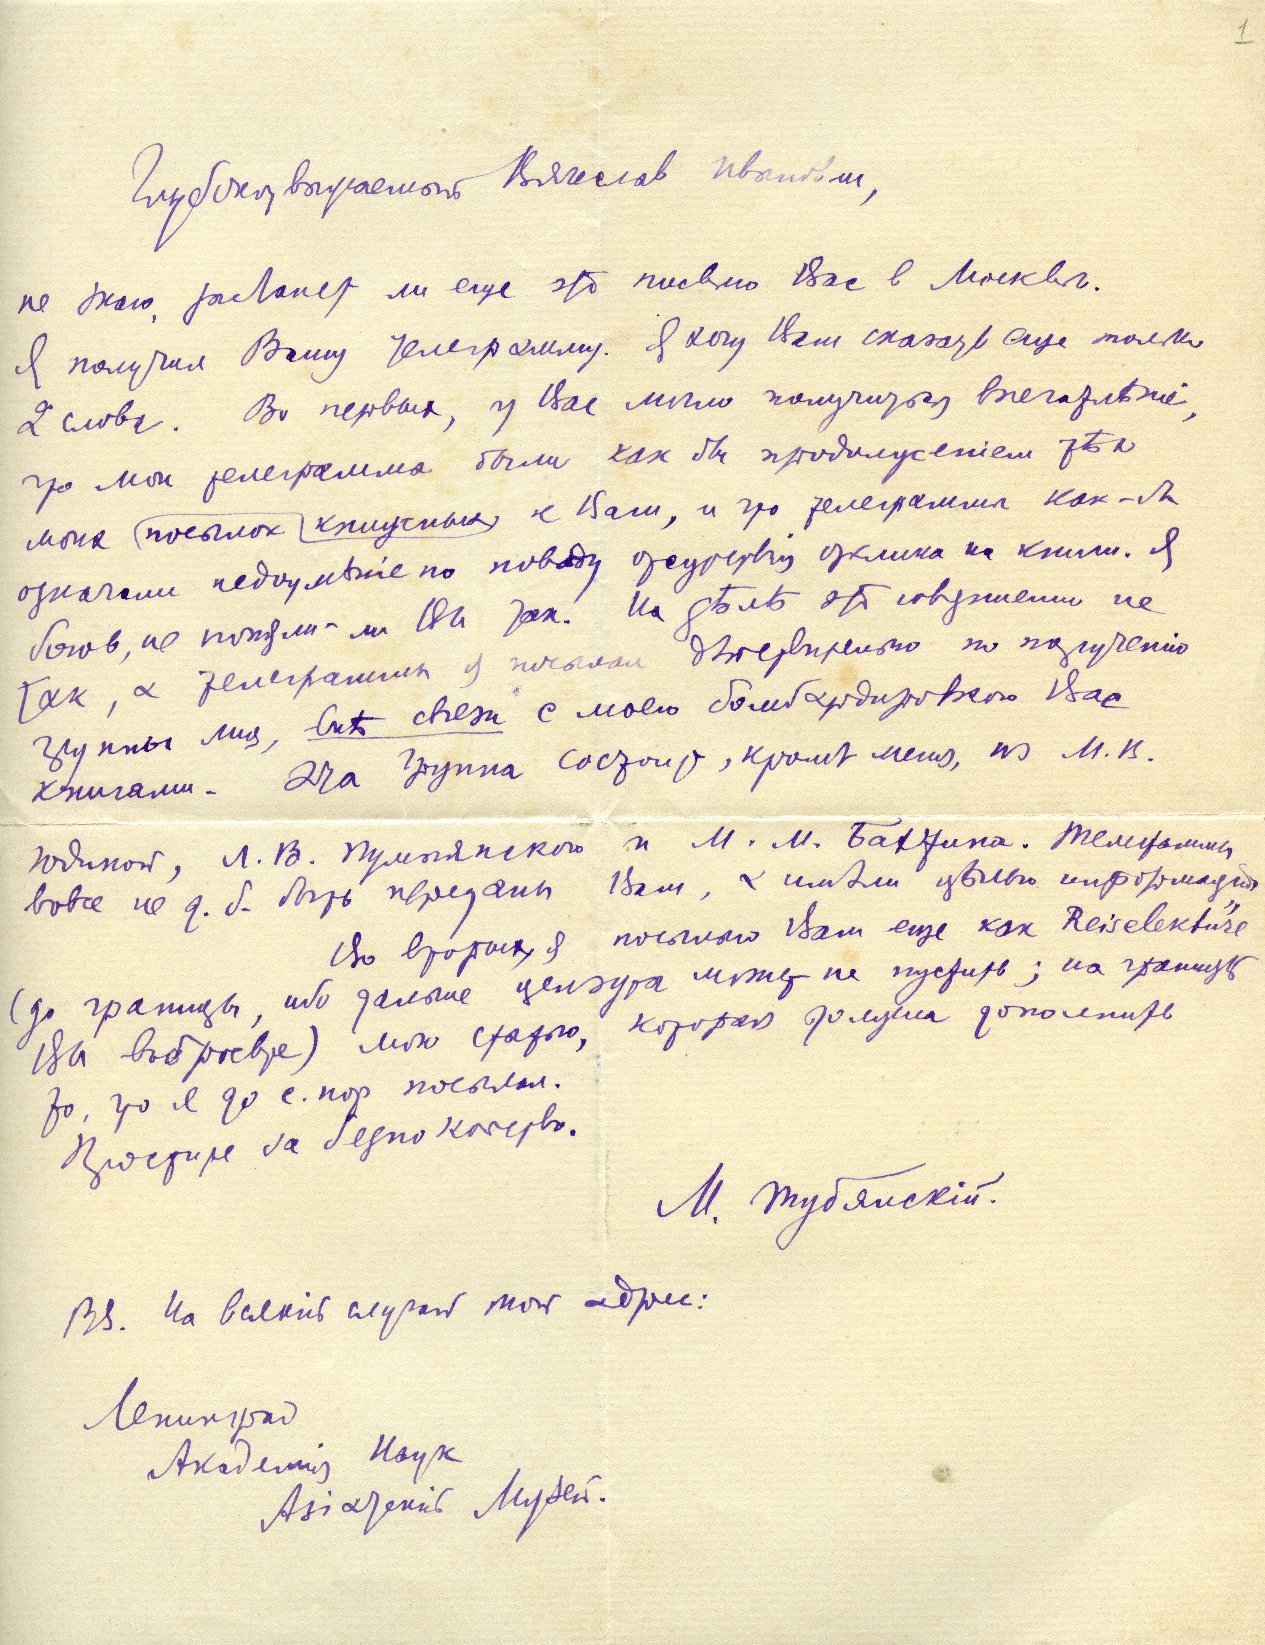 1
Глубокоуважаемый Вячеслав Иванович,
не знаю, застанет ли еще это письмо Вас в Москвѣ.
Я получил Вашу телеграмму. Я хочу Вам сказать еще только
2 слова. Во первых, у Вас могло получиться впечатлѣніе,
что мои телеграммы были как бы продолженіем тѣх
моих посылок книжных к Вам, и что телеграммы как-бы
означали недоумѣніе по поводу отсутствія отклика на книги. Я
боюсь, не поняли-ли Вы так. На дѣлѣ это совершенно не
так, а телеграммы я посылал дѣйствительно по порученію
группы лиц, внѣ связи с моею бомбардировкою Вас
книгами. Эта группа состоит, кромѣ меня, из М. В.
Юдиной, Л. В. Пумпянского и М. М. Бахтина. Телеграммы
вовсе не д. б. быть переданы Вам, а имѣли цѣлью информацію
Во вторых, я посылаю Вам еще как "Reiselektüre"
(до границы, ибо дальше цензура может не пустить; на границѣ
Вы выбросьте) мою статью, которая должна дополнить
то, что я до с. пор посылал.
Простите за безпокойство.
М. Тубянскій.
PS. На всякій случай мой адрес:
Ленинград
Академія Наук
Азіатскій Музей.